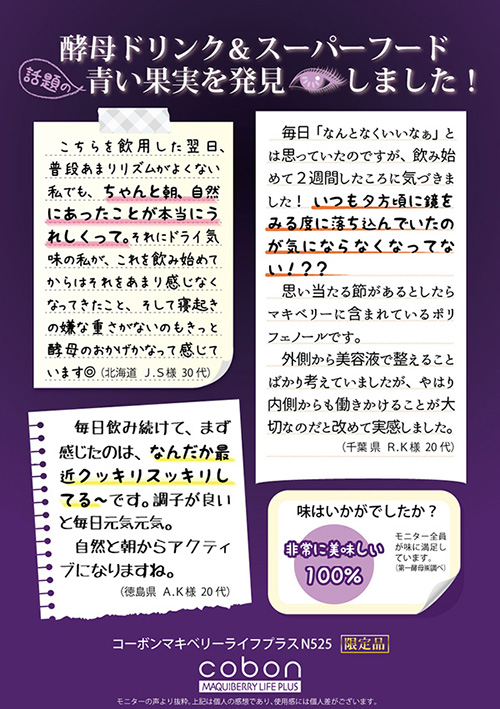 酵母ドリンク＆スーパーフード
話題の
青い果実を発見しました！
こちらを飲用した翌日、
普段あまりリズムがよくない
私でも、ちゃんと朝、自然
にあったことが本当にう
れしくって。それにドライ気
味の私が、これを飲み始めて
からはそれをあまり感じなく
なってきたこと、そして寝起き
の嫌な重さがないのもきっと
酵母のおかげかなって感じて
います◎（北海道 J.S様 30代）
毎日「なんとなくいいなぁ」と
は思っていたのですが、飲み始
めて2週間したころに気づきま
した！いつも夕方頃に鏡を
みる度に落ち込んでいたの
が気にならなくなってな
い！？？
思い当たる節があるとしたら
マキベリーに含まれているポリ
フェノールです。
外側から美容液で整えること
ばかり考えていましたが、やはり
内側からも働きかけることが大
切なのだと改めて実感しました。
（千葉県 R.K様 20代）
毎日飲み続けて、まず
感じたのは、なんだか最
近クッキリスッキリし
てる〜です。調子が良い
と毎日元気元気。
自然と朝からアクティ
ブになりますね。
（徳島県 A.K様 20代）
味はいかがでしたか？
非常に美味しい
100%
モニター全員
が味に満足し
ています。
（第一酵母㈱調べ）
コーボンマキベリーライフプラスN525 限定品
cobon
MAQUIBERRY LIFE PLUS
モニターの声より抜粋。上記は個人の感想であり、使用感には個人差がございます。